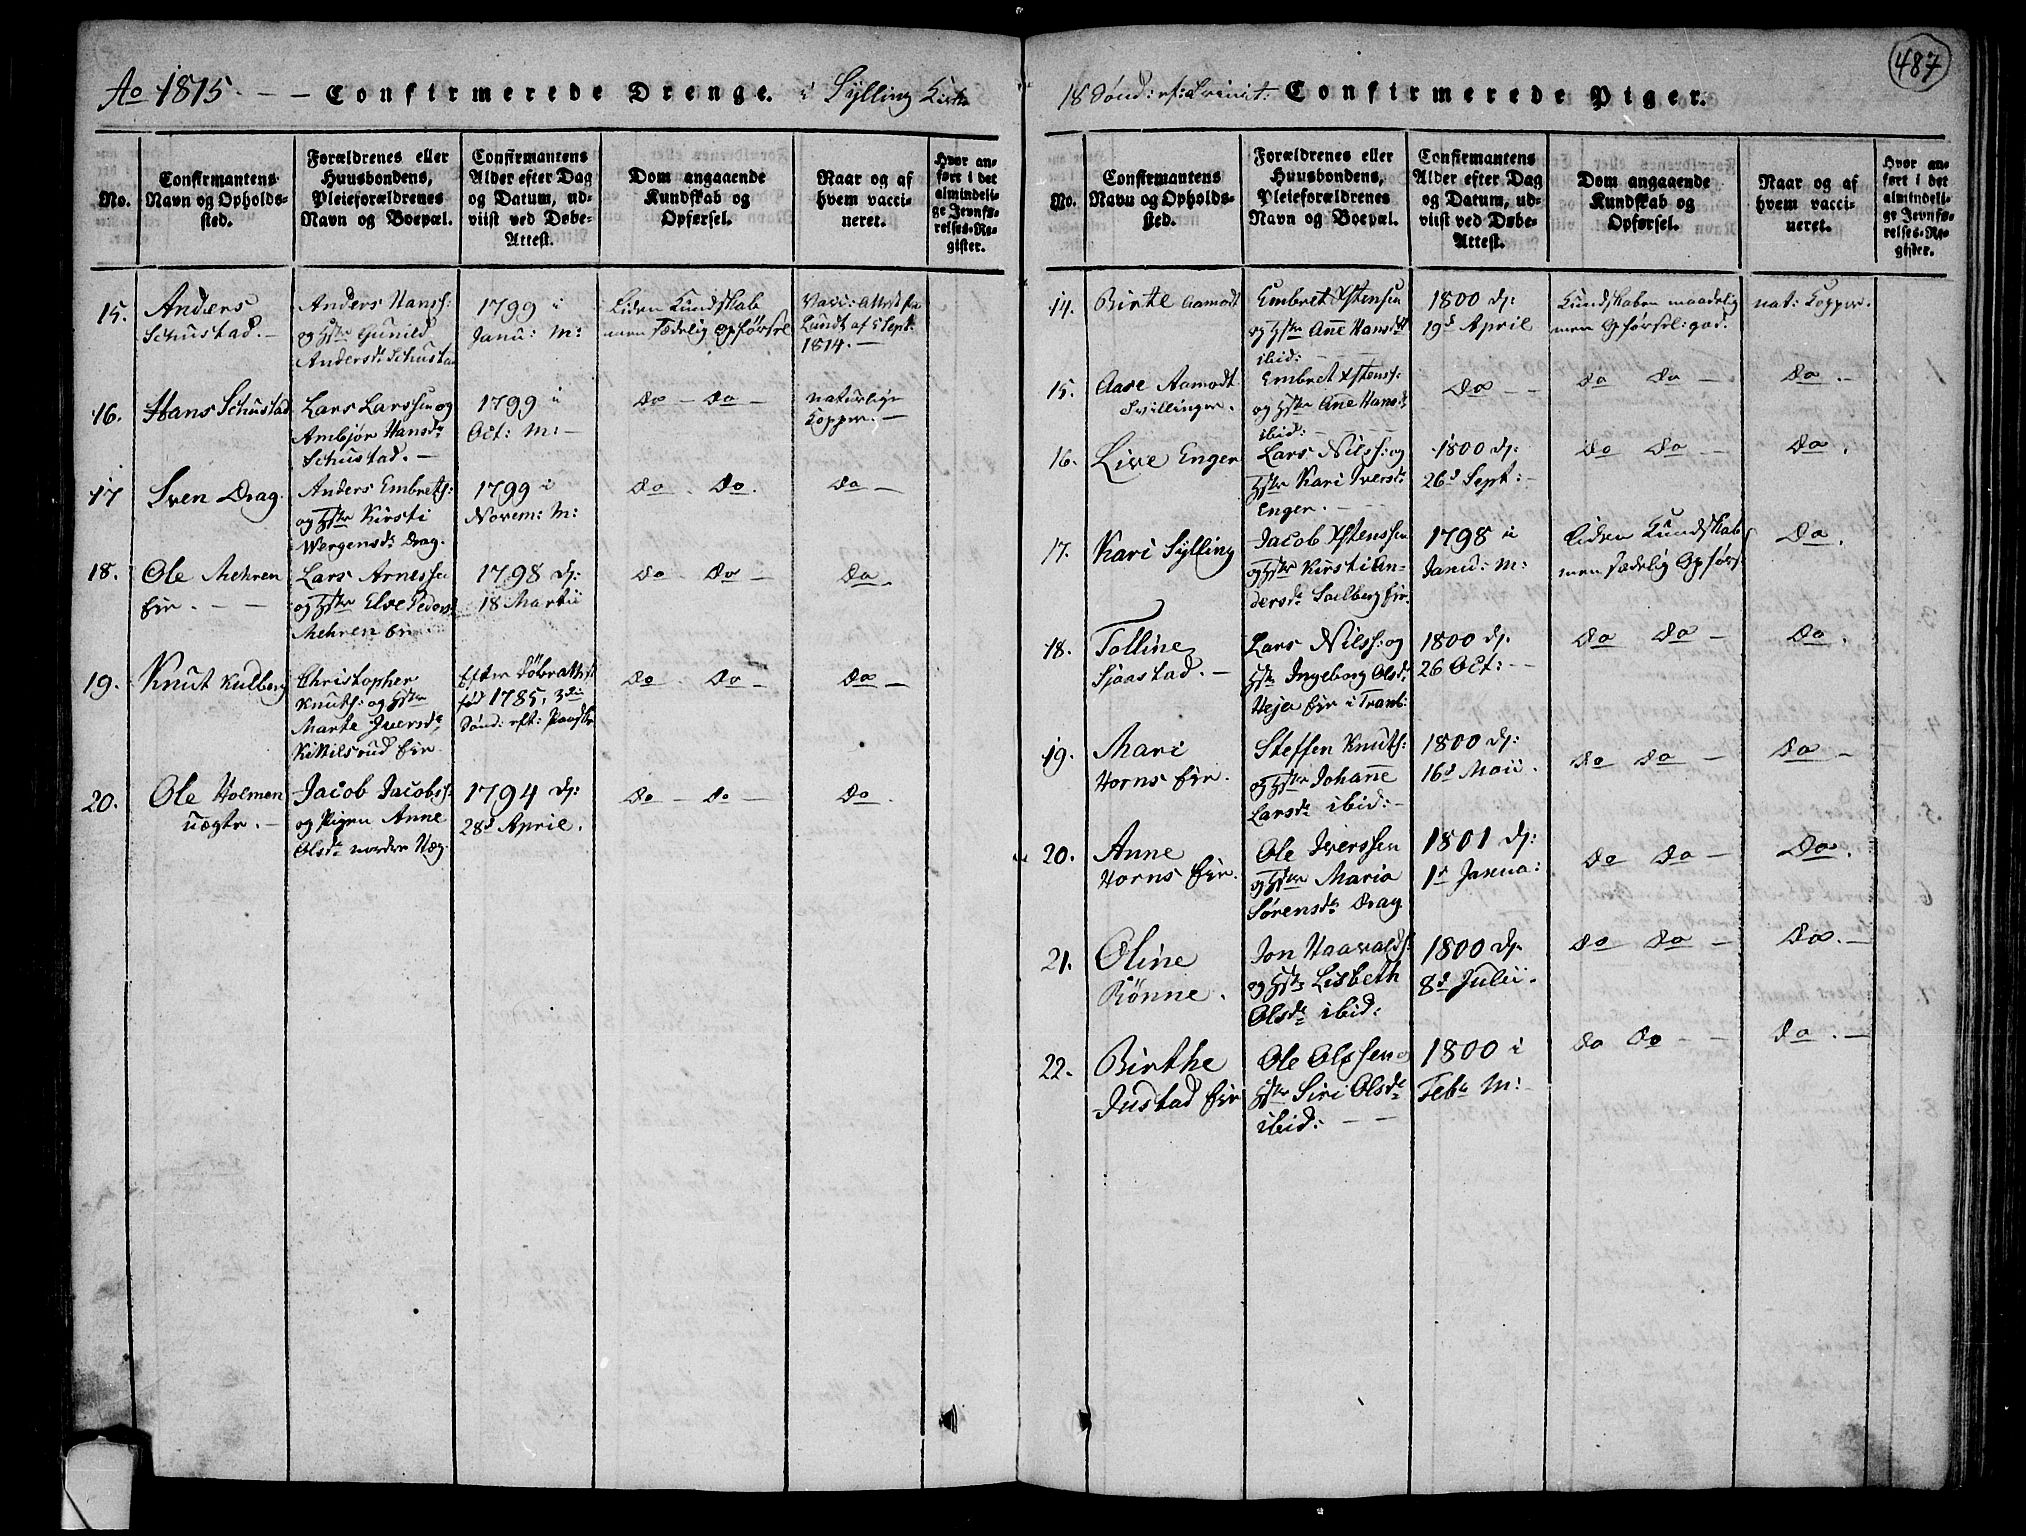 Ao 1815. — Confirmerede Drenge. i Sylling Kirke
No.
Confirmantens
Navn og Opholds-
sted.
Forældrenes eller
Huusbondens,
Pleieforældrenes
Navn og Boepæl.
Confirmantens
Alder efter Dag
og Datum, ud-
viist ved Døbe-
Attest.
Dom angaaende
Kundskab og
Opførsel.
Naar og af
hvem vacci-
neret.
Hvor an-
ført i det
almindeli-
ge Jevnfø-
relses-Re-
gister.
15.
Anders
Schustad. —
Anders Hanss:
og Hstr Gunild
Andersdr Schustad
1799 i
Janu: M:
Liden Kundskab
men Sædelig Opförsel
Vacc: Attest fra
Lundt af 5 Sept:
1814. —
16.
Hans Schustad
Lars Larssen og
Ambjör Hansdr
Schustad. —
1799 i
Oct: M: —
do — do —
naturlige
Kopper. —
17
Sven Drag.
Anders Embrets:
og Hstr Kirsti
Wergensdr Drag.
1799 i
Novem: M:
do. do.
do —
18.
Ole Mehren
Eir. — —
Lars Arnessen
og Hstr Elve Pedersdr
Mehren Eir
1798 d:
18 Martii
do - do —
do.
19.
Knut Kulberg
Christopher
Knuts: og Hstr
Marte Iversdr
Kittilsrud Eir
Efter Döbeattest
föd 1785, 3die
Sönd: eft: Paaske
do. do —
do —
20.
Ole Holmen
uægte. —
Jacob Jacobs:
og Pigen Anne
Olsdr nordre Hæg.
1794 d:
28d April.
do — do —
do.
487
18 Sönd: ef: Trinit: Confirmerede Piger.
No.
Confirmantens
Navn og Opholds-
sted.
Forældrenes eller
Huusbondens,
Pleieforældrenes
Navn og Boepæl.
Confirmantens
Alder efter Dag
og Datum, ud-
viist ved Døbe-
Attest.
Dom angaaende
Kundskab og
Opførsel.
Naar og af
hvem vacci-
neret.
Hvor an-
ført i det
almindeli-
ge Jevnfø-
relses-Re-
gister.
14.
Birte Aamodt
Embret Ostensen
og Hstr Ane Hansdr
ibid: — —
1800 d:
19d April
Kundskaben maadelig
men Opförsel: god.
nat: Kopper.
15.
Aase Aamodt
Tvillinger.
Embret Ostenss:
og Hstr Ane Hansdr
ibid: — —
do —
do do —
do. —
16.
Live Enger
Lars Nilss: og
Hstr Kari Iversdr
Enger. — —
1800 d:
26d Sept: —
do do —
do.
17.
Kari Sylling
Jacob Ostenssen
og Hstr Kirsti An-
dersdr Soelberg Eir.
1798 i
Janu: M:
Liden Kundskab
men Sædelig Opförs:
do.
18.
Tolline
Sjaastad. —
Lars Nilss: og
Hstr Ingeborg Olsdr
Heja Eir i Tranb:
1800 d:
26 Oct: —
do do —
do.
19.
Mari
Horns Eir.
Steffen Knuts:
og Hstr Johañe
Larsdr ibid: —
1800 d:
16d Maii.
do do —
do —
20.
Anne
Horns Eir.
Ole Iverssen
og Hstr Maria
Sørensdr Drag
1801 d:
1d Janua:
do do —
do.
21.
Oline
Rönne.
Jon Haavalds:
og Hstr Lisbeth
Olsdr ibid:
1800 d:
8d Julii.
do do —
do. —
22.
Birthe
Justad Eir
Ole Olssen og
Hstr Siri Olsdr
ibid: — —
1800 i
Febr M:
do do — —
do. —